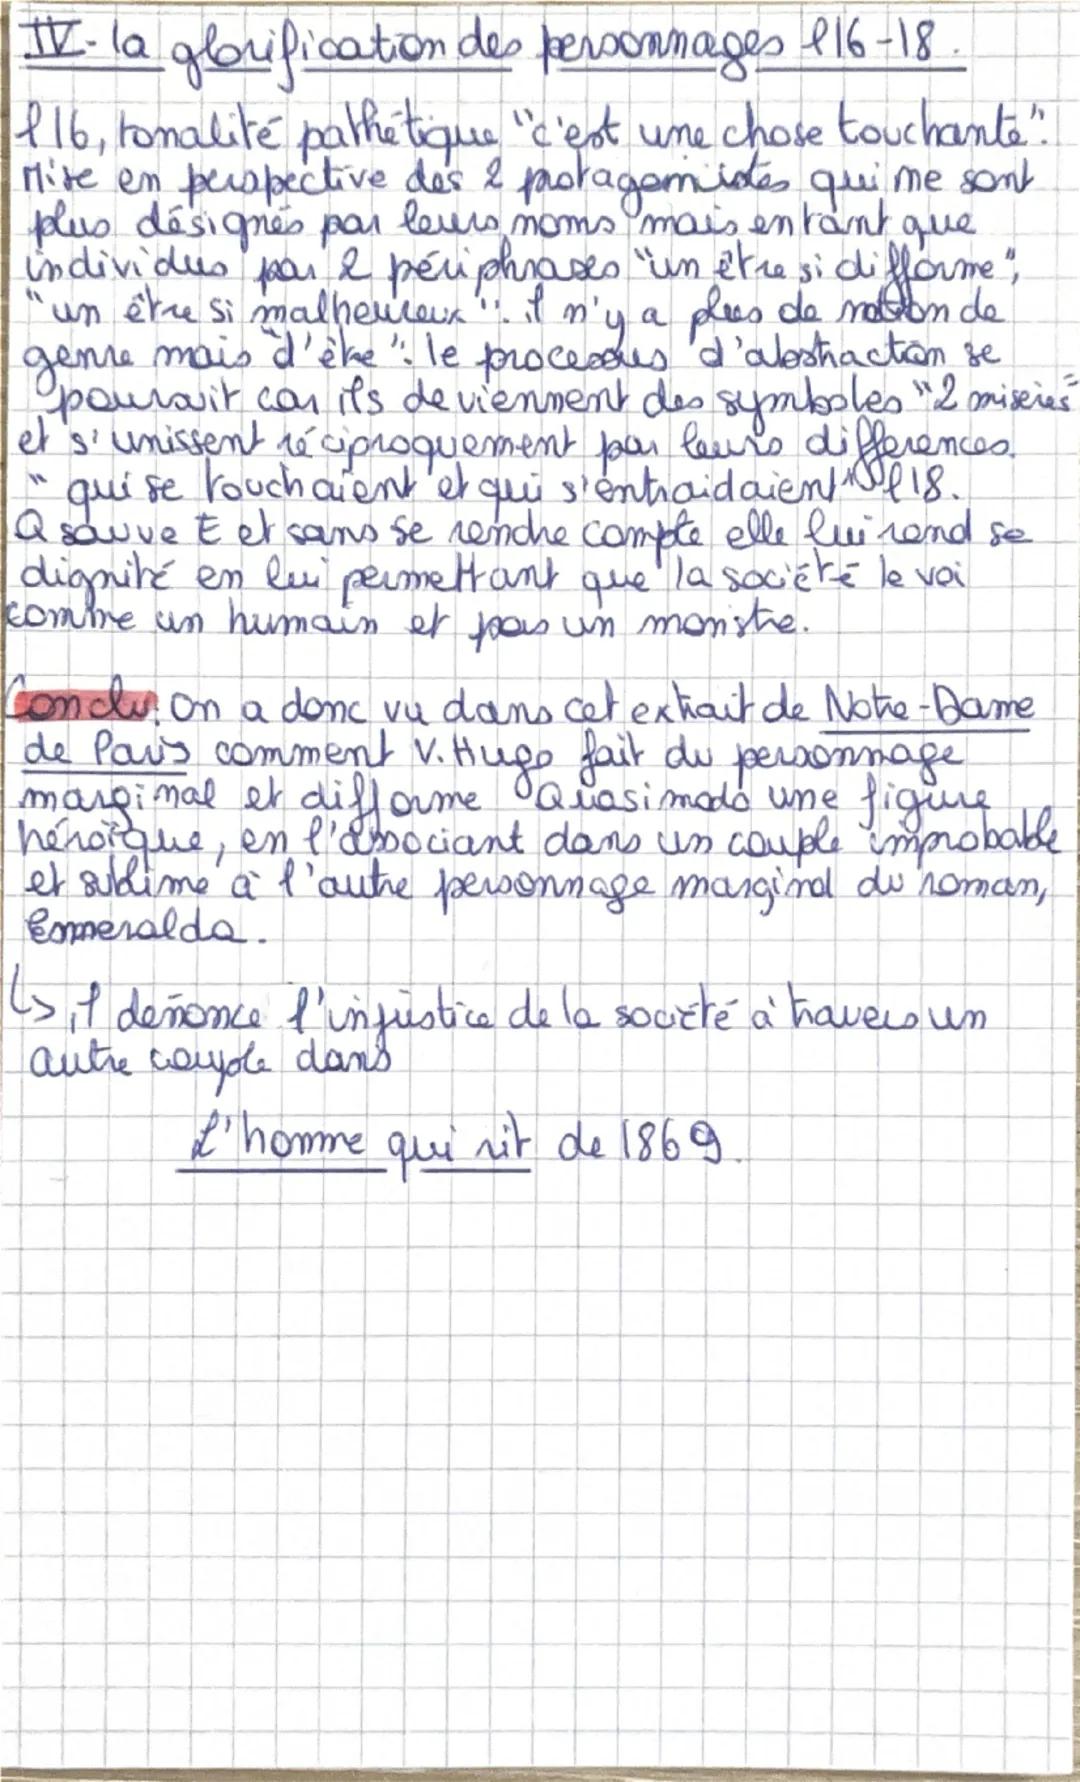 IV - la glorification des personnages l16-18.
l16, tonalité pathétique "c'est une chose touchante".
Mise en perspective des 2 protagonistes qui ne sont
plus désignés par leurs noms mais entant que
individus par 2 périphrases "un être si difforme",
"un être si malheureux". il n'y a plus de notion de
genre mais "d'être". le processus d'abstraction se
poursuit car ils deviennent des symboles "2 misères"
et s'unissent réciproquement par leurs différences.
"qui se touchaient et qui s'entraidaient" l18.
Q sauve E et sans se rendre compte elle lui rend se
dignité en lui permettant que la société le voi
comme un humain et pas un monstre.
Conclu: On a donc vu dans cet extrait de Notre-Dame
de Paris comment V. Hugo fait du personnage
marginal et difforme Quasimodo une figure
héroïque, en l'associant dans un couple improbable
et sublime à l'autre personnage marginal du roman,
Esmeralda.
↳ il dénonce l'injustice de la société à travers un
autre couple dans
L'homme qui rit de 1869.